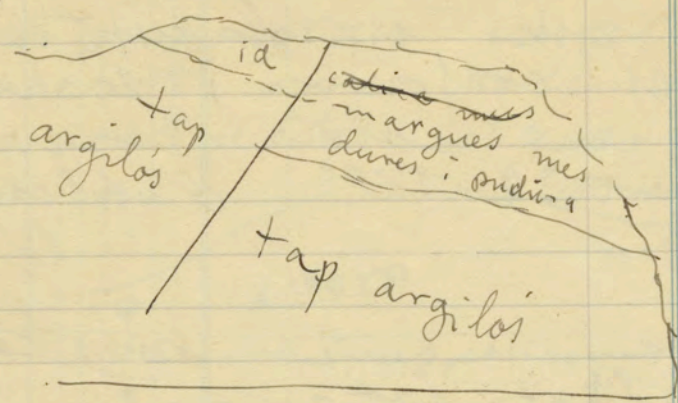 id
tap
argilós
calica mes
margues mes
dures i
tap argilós